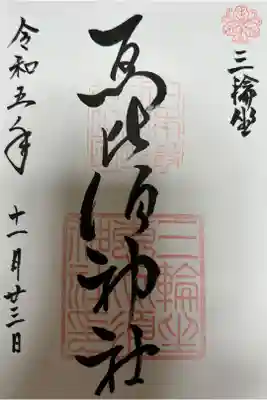 三輪坐
恵比須神社
令和五年 十一月廿三日
三輪坐